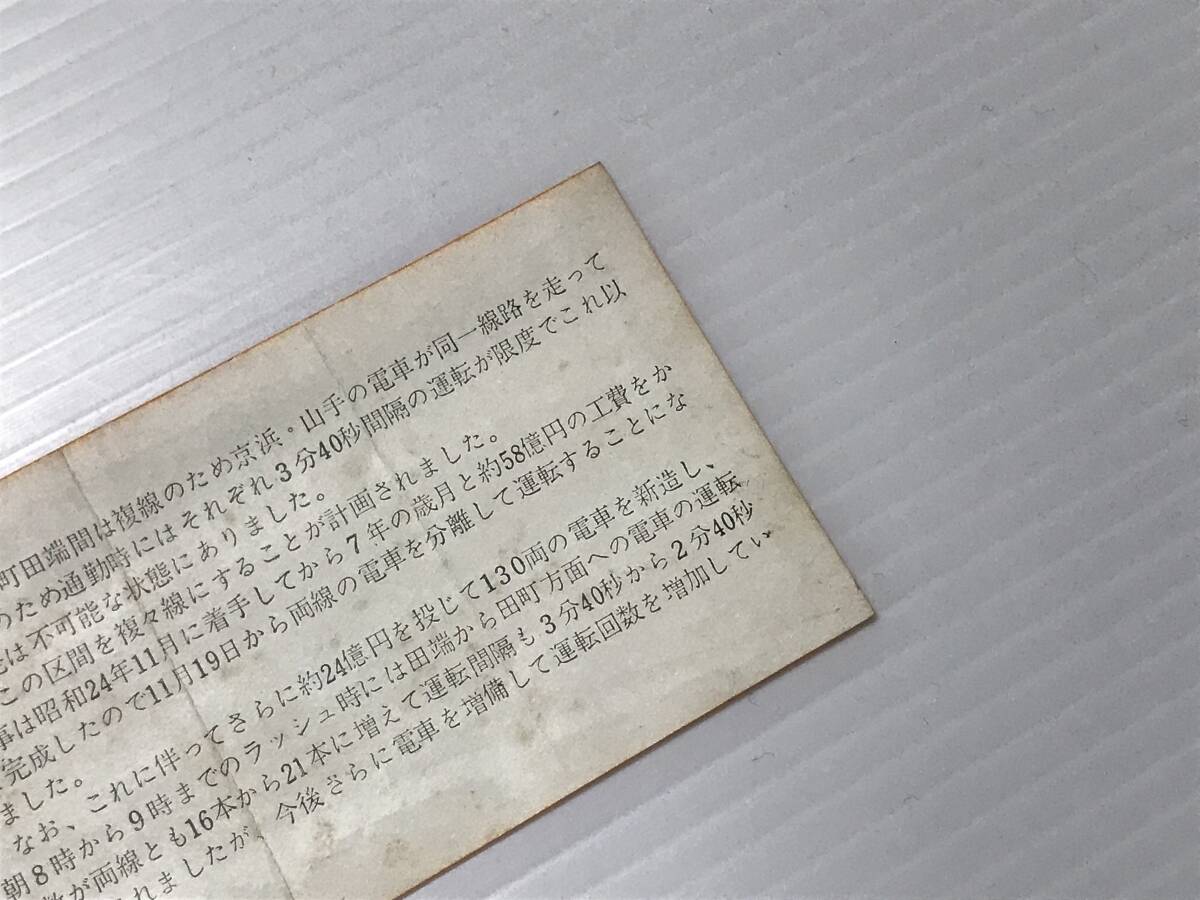 町田端間は複線のため京浜・山手の電車が同一線路を走って
のため通勤時にはそれぞれ3分40秒間隔の運転が限度でこれ以
は不可能な状態にありました。
この区間を複々線にすることが計画されました。
事は昭和24年11月に着手してから7年の歳月と約58億円の工費をか
完成したので11月19日から両線の電車を分離して運転することにな
ました。
なお、これに伴ってさらに約24億円を投じて130両の電車を新造し、
朝8時から9時までのラッシュ時には田端から田町方面への電車の運転
数が両線とも16本から21本に増えて運転間隔も3分40秒から2分40秒
れましたが、今後さらに電車を増備して運転回数を増加してい